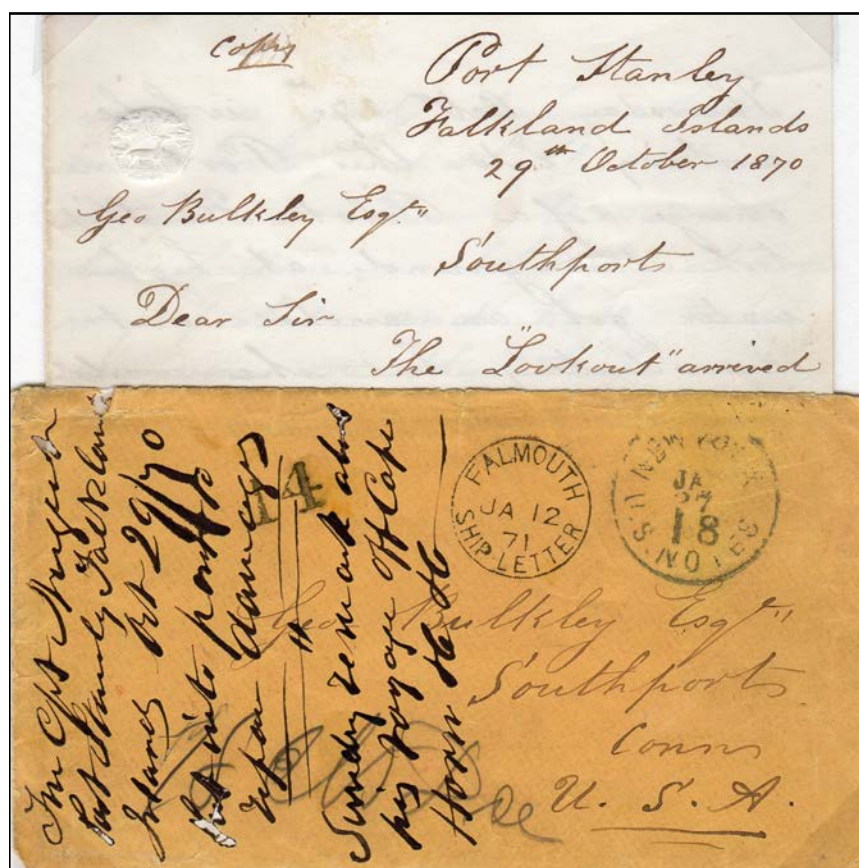 copy
Port Stanley
Falkland Islands
29th October 1870
Geo Bulkley Esqre
Southports
Dear Sir
The "Lookout" arrived
Port Stanley Falkland
Island Oct 29/70
Put into port to
repair damages
Sundry remark about
his voyage off Cape
Horn
14
FALMOUTH
JA 12
71
SHIP LETTER
NEW YORK
JA
27
18
U.S. NOTES
Geo Bulkley Esqre
Southports
Conn
U. S. A.